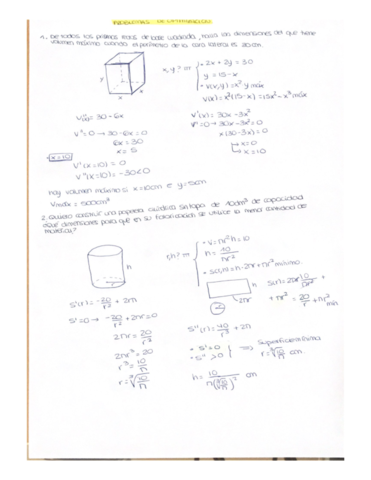 PROBLEMAS DE OPTIMIZACIÓN
1. De todos los prismas rectos de base cuadrada, halla las dimensiones del que tiene
volumen máximo cuando el perímetro de la cara lateral es 30cm.
x, y? ⇒
2x + 2y = 30
y = 15 - x
V(x,y) = x² · y máx
V(x) = x²(15-x) = 15x² - x³ máx
y
x
x
V''(x) = 30 - 6x
V''=0 → 30-6x = 0
6x = 30
x = 5
V'(x) = 30x - 3x²
V'=0 → 30x - 3x² = 0
x(30-3x) = 0
x=0
x=10
x=10
V'(x=10) = 0
V''(x=10) = -30<0
Hay volumen máximo si x=10cm e y=5cm
Vmáx = 500cm³
2. Quiero construir una papelera cilíndrica sin tapa de 10dm³ de capacidad
¿Qué dimensiones para que en su fabricación se utilice la menor cantidad de
material?
h
r, h? ⇒
V = πr²h = 10
h = 10/πr²
S(r,h) = h·2πr + πr² mínimo
2πr
S(r) = 2πr · 10/πr² +
+ πr² = 20/r + πr² mín
S'(r) = -20/r² + 2πr
S'=0 → -20/r² + 2πr = 0
2πr = 20/r²
2πr³ = 20
r³ = 10/π
r = ∛10/π
S''(r) = 40/r³ + 2π
S' = 0
S'' > 0
⇒ Superficie mínima
r = ∛10/π cm.
h = 10/π(∛10/π)² cm